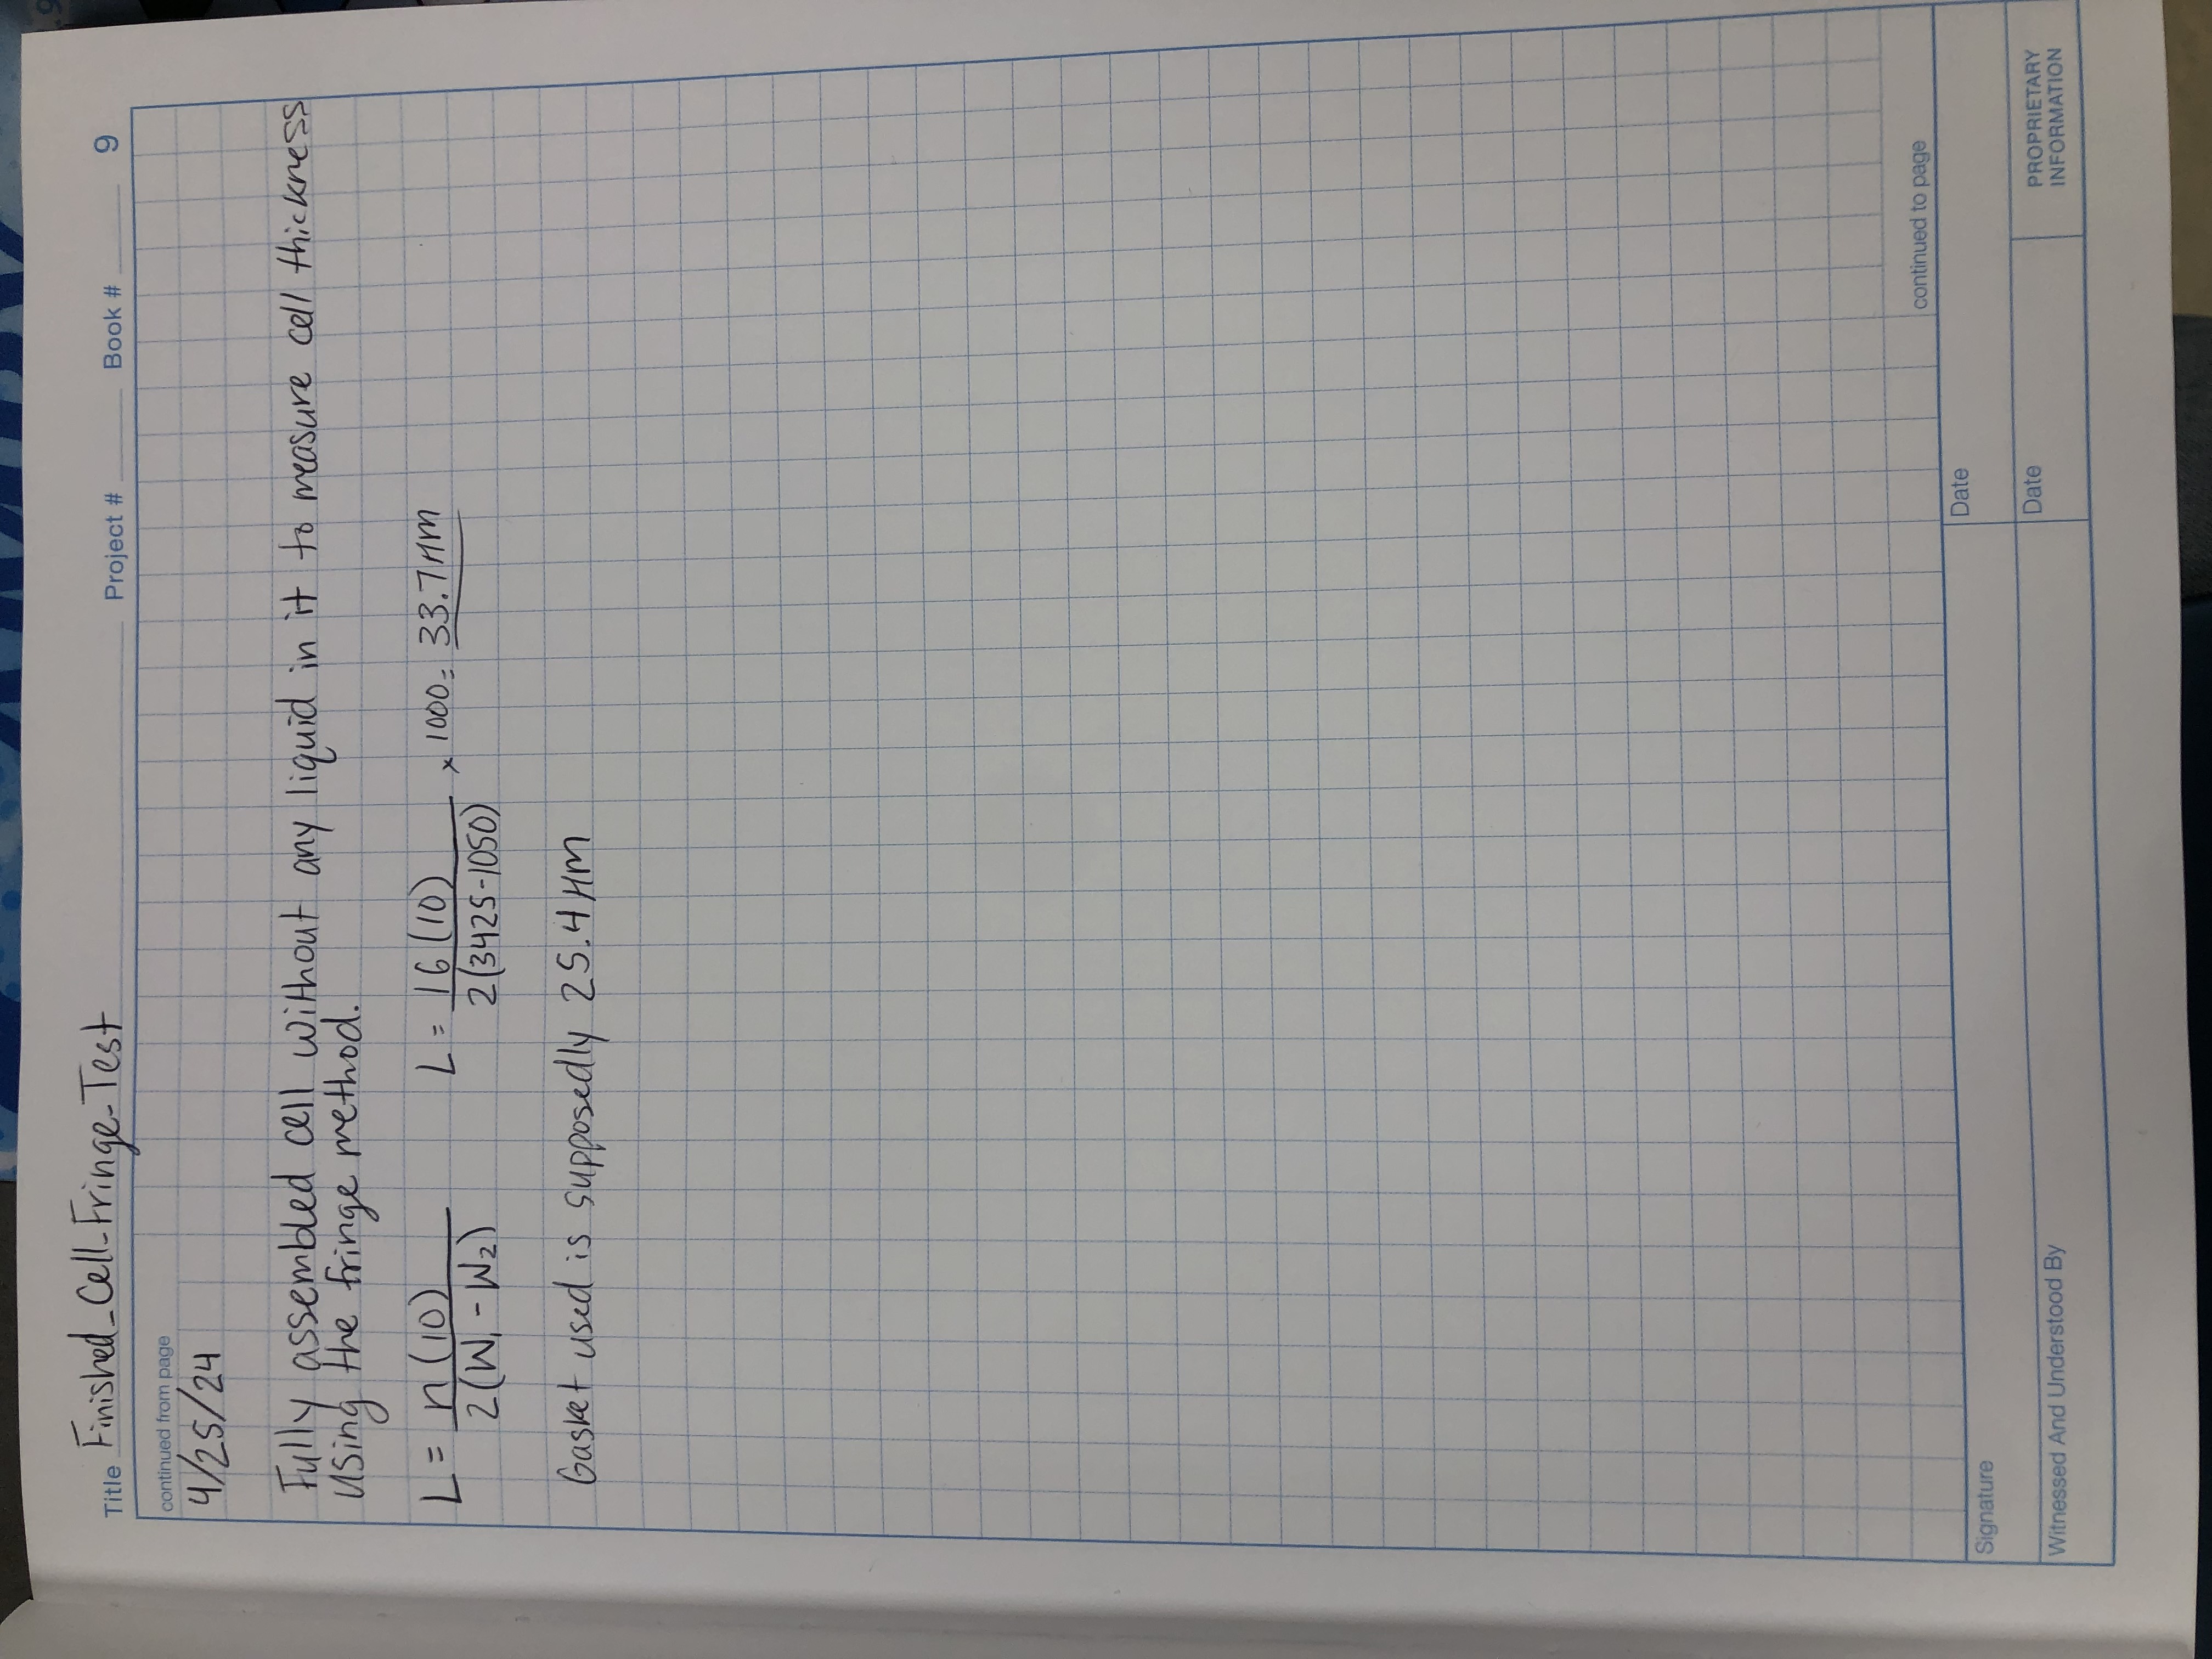 Title Finished_Cell_Fringe_Test Project # Book # 9
continued from page
4/25/24
Fully assembled cell without any liquid in it to measure cell thickness
using the fringe method.
L = n(10) / 2(W₁ - W₂) L = 16(10) / 2(3425-1050) × 1000 = 33.7 μm
Gasket used is supposedly 25.4 μm
continued to page
Signature Date
Witnessed And Understood By Date PROPRIETARY
INFORMATION